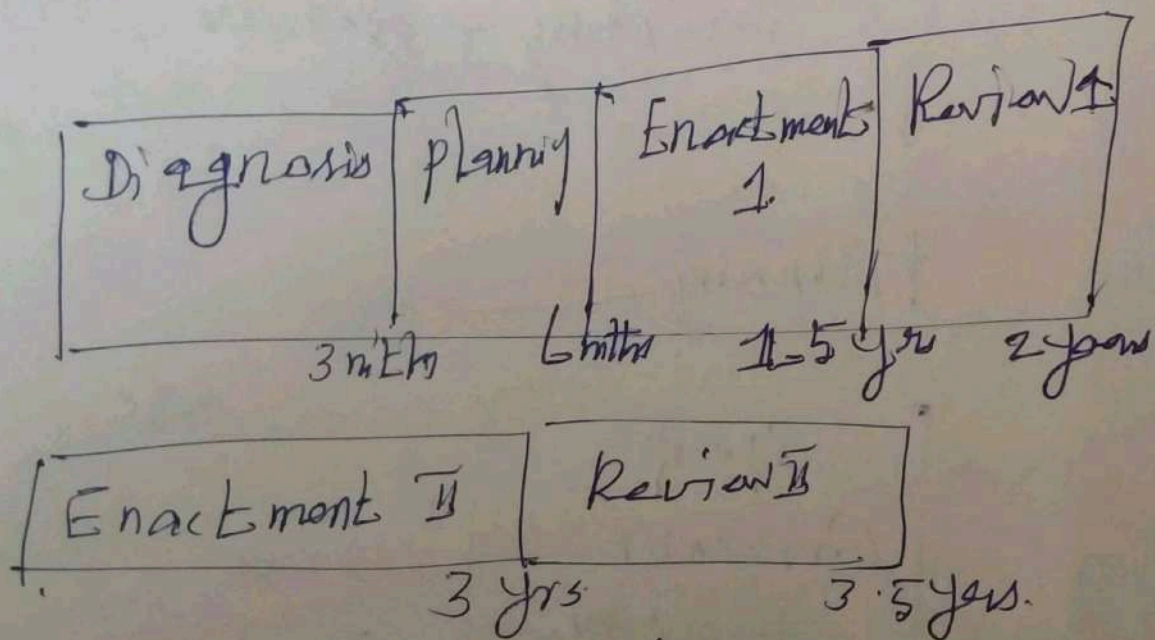 Diagnosis Planniy Enactment 1. Review 1
3 mth 6 mths 1.5 yr 2 years
Enactment II Review II
3 yrs 3.5 yers.